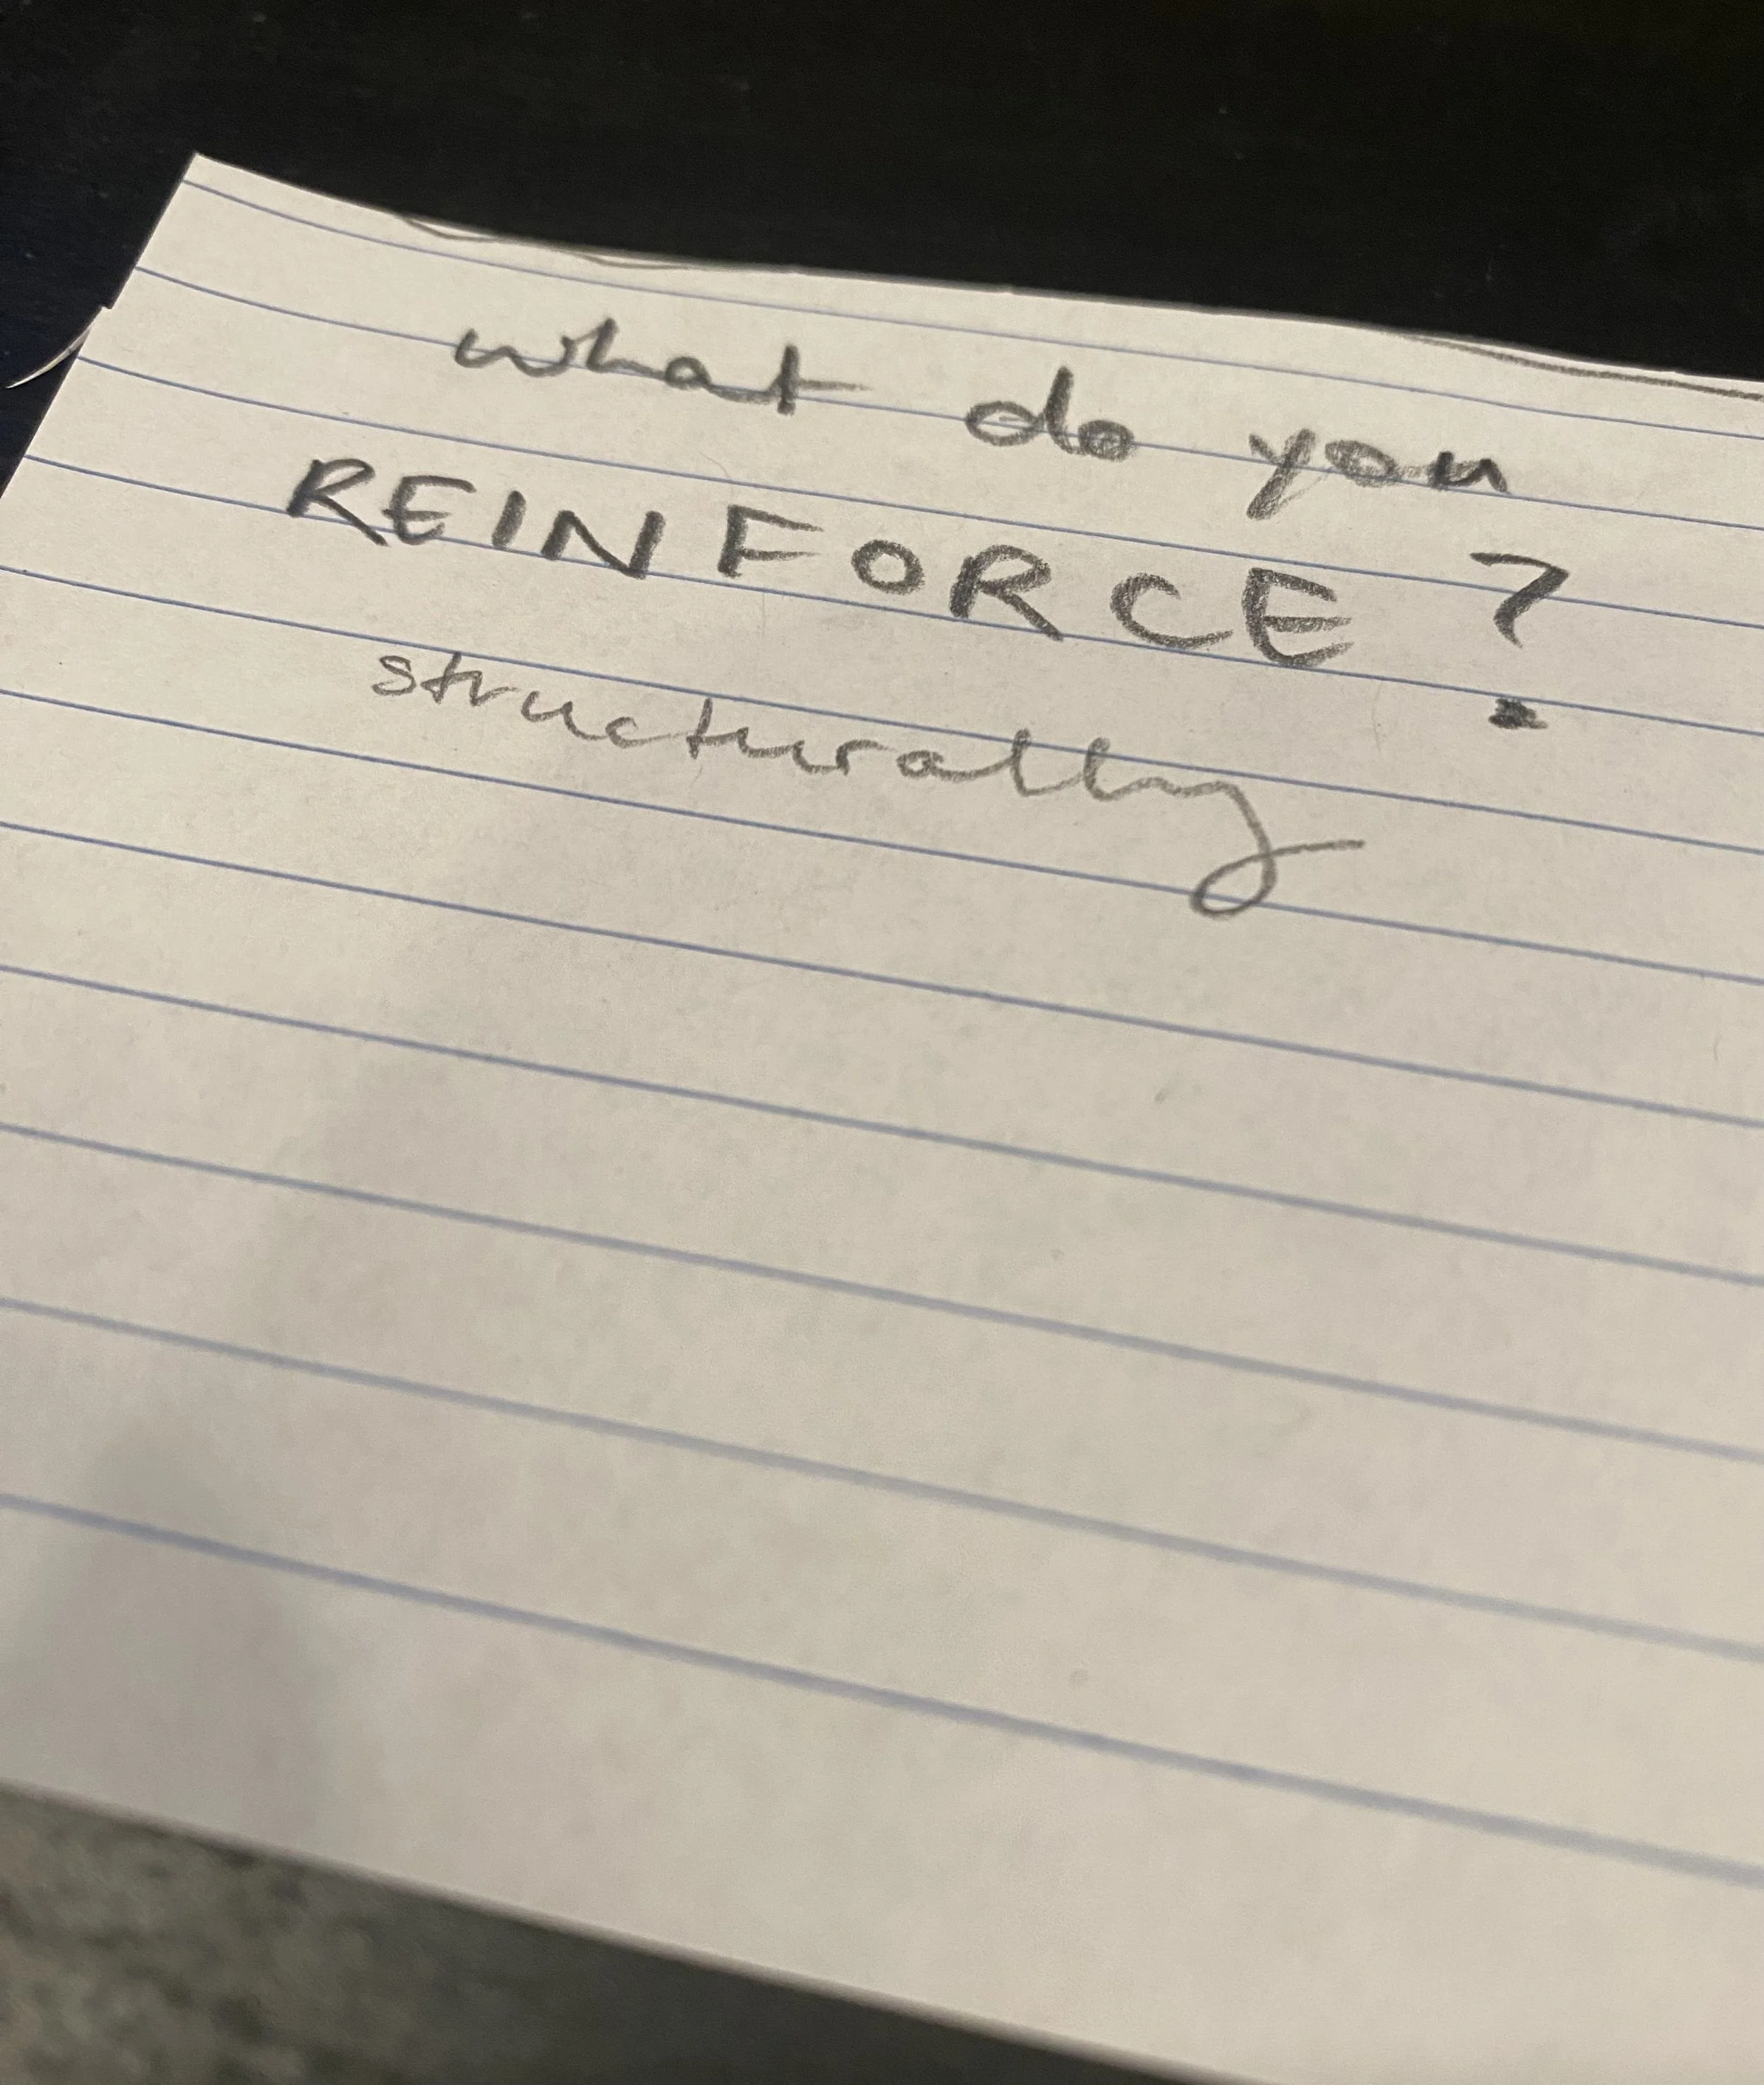 what do you
REINFORCE?
structurally